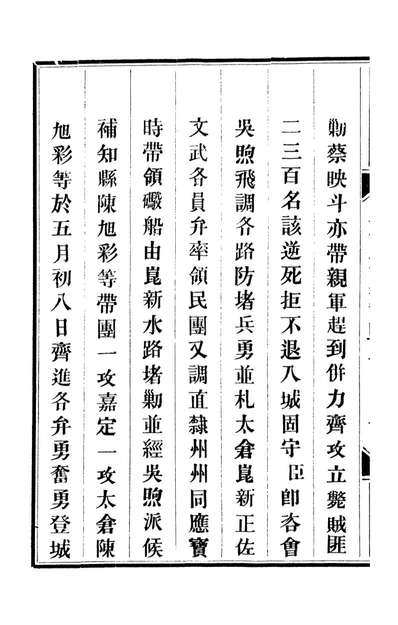 勦蔡映斗亦帶親軍趕到併力齊攻立斃賊匪
二三百名該逆死拒不退入城固守臣卽咨會
吳煦飛調各路防堵兵勇並札太倉崑新正佐
文武各員弁率領民團又調直隸州州同應寶
時帶領礮船由崑新水路堵勦並經吳煦派候
補知縣陳旭彩等帶團一攻嘉定一攻太倉陳
旭彩等於五月初八日齊進各弁勇奮勇登城